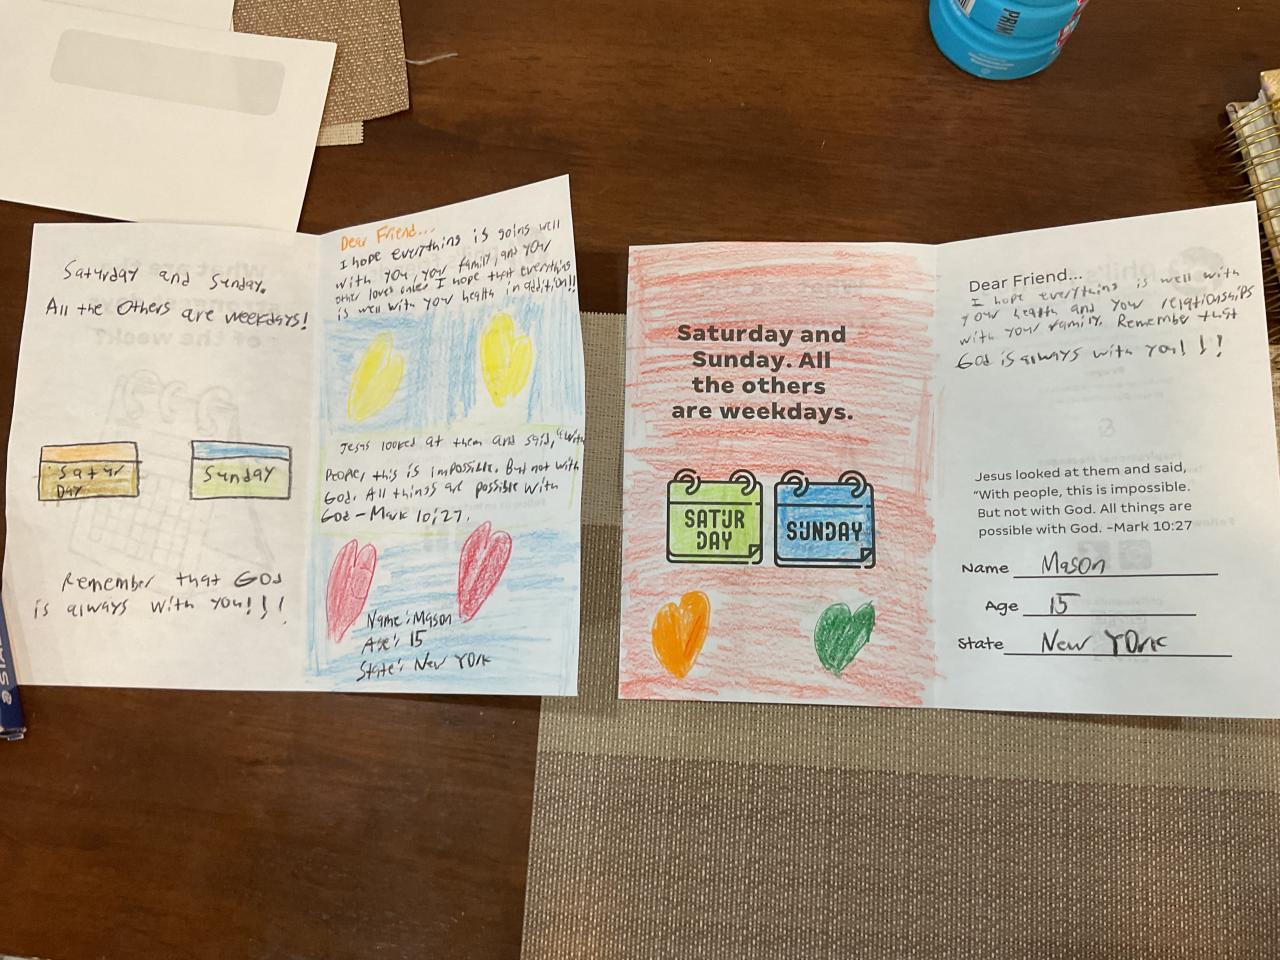 PRIM
Saturday and Sunday.
All the Others are weekdays!
Satur
Day
Sunday
Remember that God
is always with you!!!
Dear Friend...
I hope everything is going well
with you, your family, and your
other loved ones. I hope that everything
is well with your health in addition!!
Jesus looked at them and said, "With
People, this is impossible. But not with
God. All things are possible with
God - Mark 10:27.
Name: Mason
Age: 15
State: New York
Saturday and
Sunday. All
the others
are weekdays.
SATUR
DAY
SUNDAY
Dear Friend...
I hope everything is well with
your health and your relationships
with your family. Remember that
God is always with you!!!
Jesus looked at them and said,
"With people, this is impossible.
But not with God. All things are
possible with God. -Mark 10:27
Name Mason
Age 15
State New York